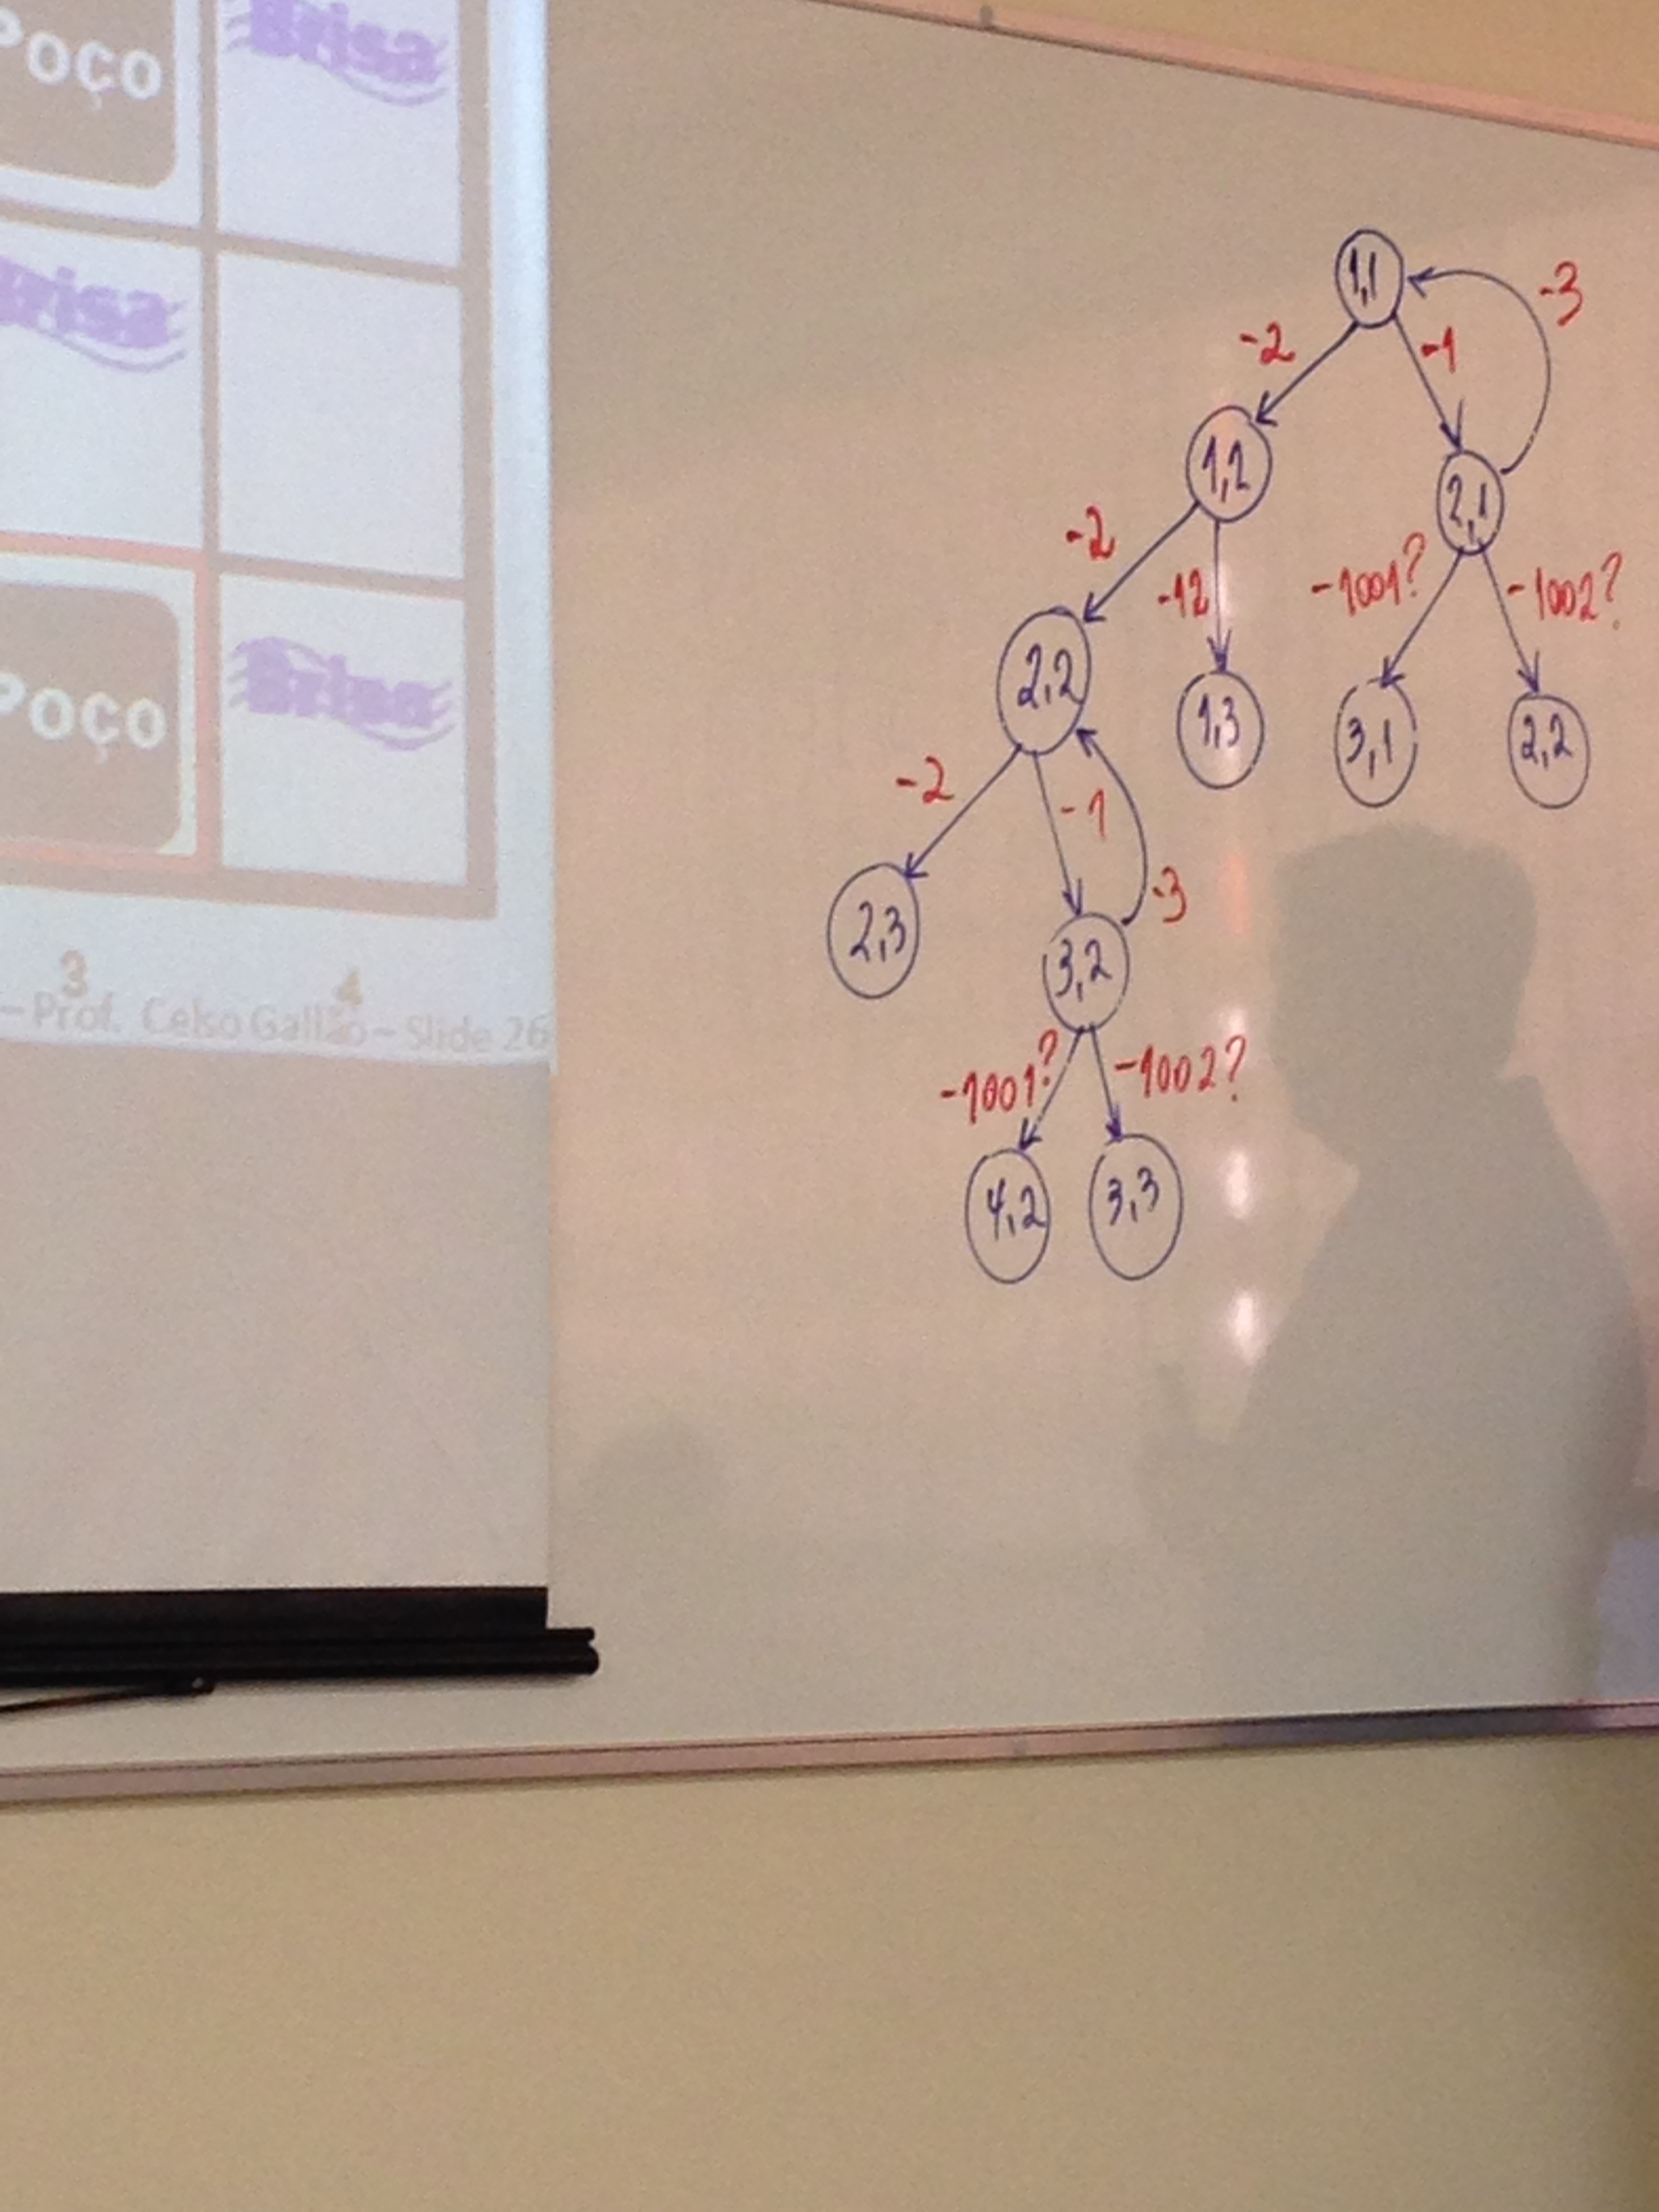 Poço Brisa
Brisa
Poço Brisa
3 4
– Prof. Celso Gallão – Slide 26
1,1
-3
-2 -1
1,2
2,1
-2 -12 -1001? -1002?
2,2
1,3 3,1 2,2
-2 -1
-3
2,3
3,2
-1001? -1002?
4,2 3,3